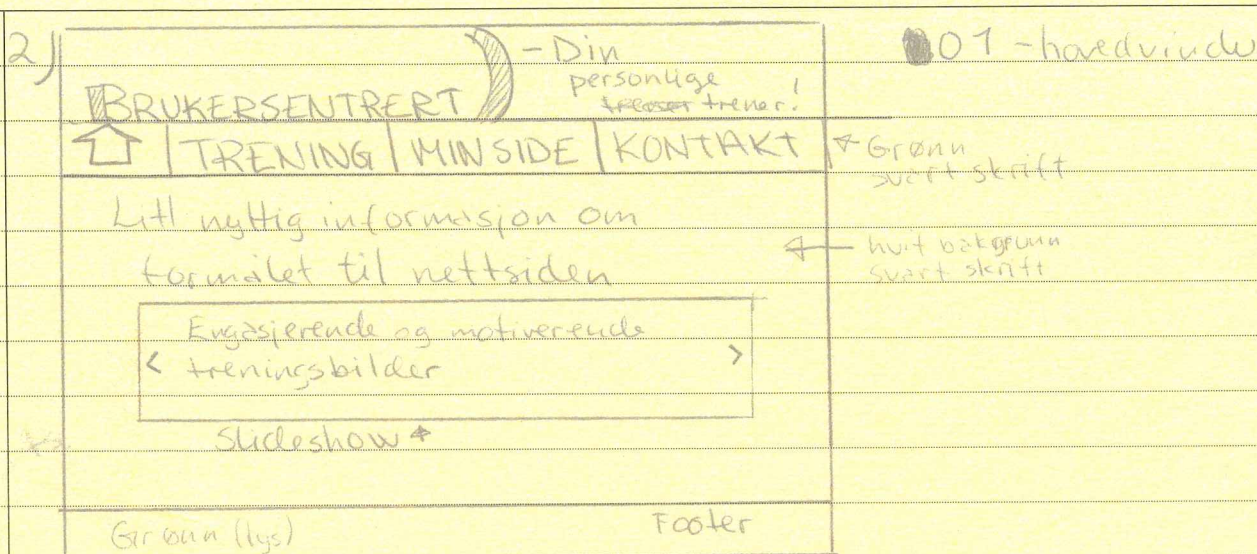 2)
- Din
personlige
trener!
BRUKERSENTRERT
01 - hovedvindu
TRENING | MIN SIDE | KONTAKT
Grønn
svart skrift
Litt nyttig informasjon om
formålet til nettsiden
hvit bakgrunn
svart skrift
Engasjerende og motiverende
< treningsbilder >
Slideshow
Grønn (lys)
Footer